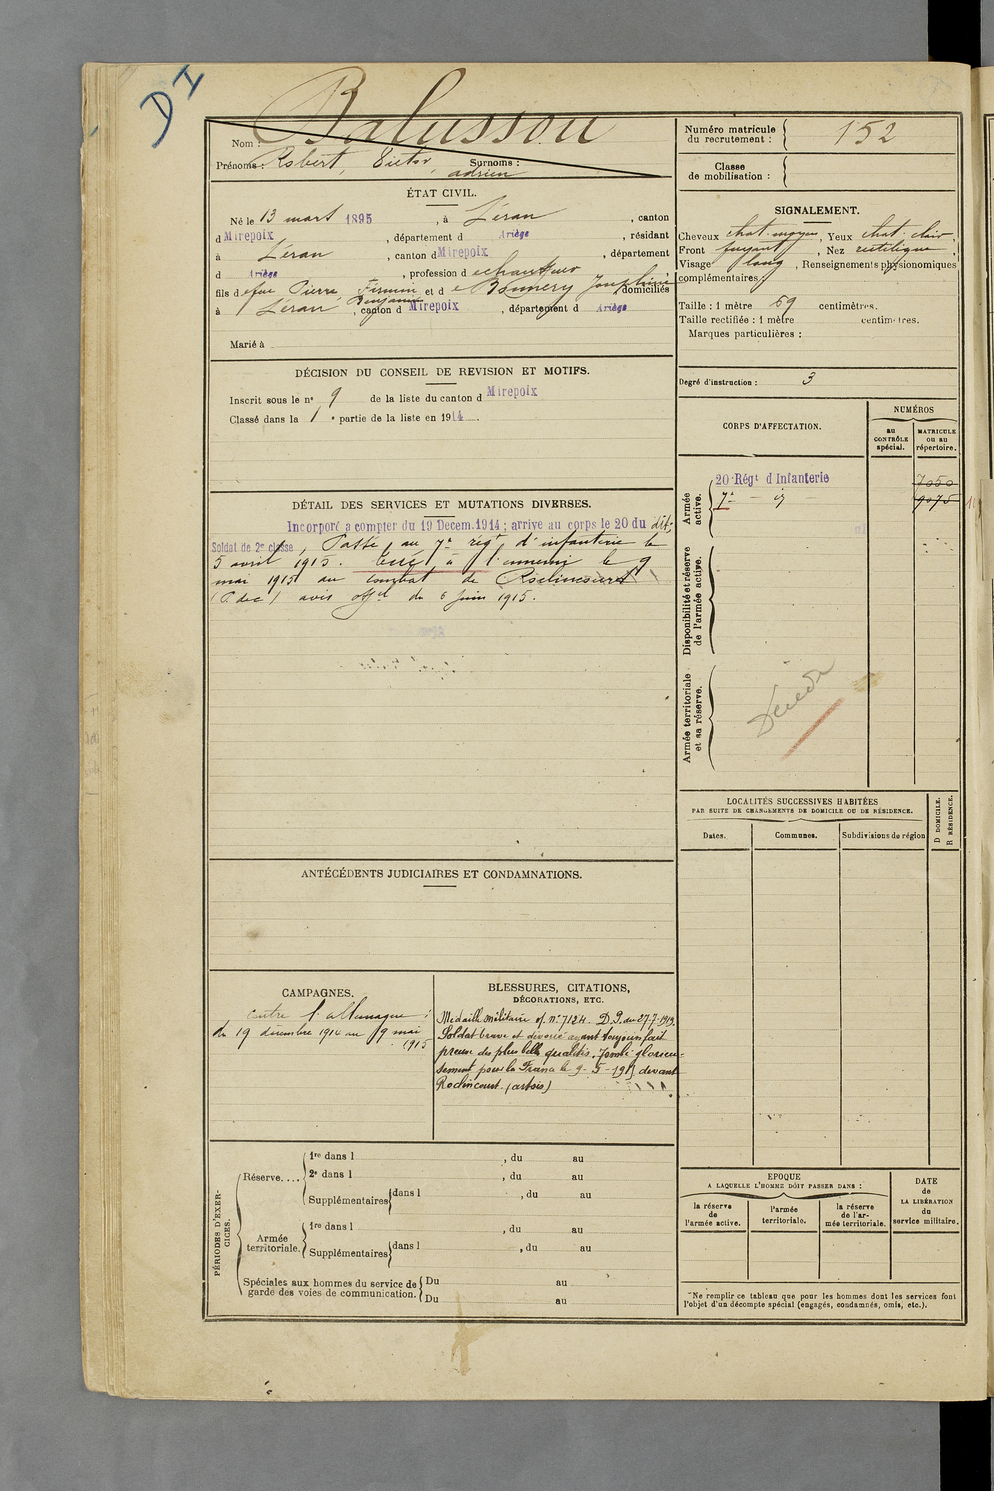 D I
Balussou
Nom :
Prénoms : Robert, Victor, Surnoms :
adrien
ÉTAT CIVIL.
Né le 13 mars 1895, à Léran, canton
d Mirepoix, département d Ariège, résidant
à Léran, canton d Mirepoix, département
d Ariège, profession d
fils d efeu Pierre, Firmin et d e Joséphine domiciliés
Benjamin
à Léran, canton d Mirepoix, département d Ariège
Marié à
DÉCISION DU CONSEIL DE REVISION ET MOTIFS.
Inscrit sous le n° 9 de la liste du canton d Mirepoix
Classé dans la 1e partie de la liste en 1914.
DÉTAIL DES SERVICES ET MUTATIONS DIVERSES.
Incorporé a compter du 19 Decem. 1914 ; arrive au corps le 20 du dit;
Soldat de 2e classe, Passé au 7e régt d'infanterie le
5 avril 1915. Tué à l'ennemi le 9
mai 1915 au combat de
(P. de C.) avis offel du 6 juin 1915.
ANTÉCÉDENTS JUDICIAIRES ET CONDAMNATIONS.
CAMPAGNES.
contre l'allemagne :
du 19 décembre 1914 au 9 mai
1915
BLESSURES, CITATIONS,
DÉCORATIONS, ETC.
Médaille militaire of. n° 7124. D.G. du 27-7-1919.
Soldat brave et dévoué ayant toujours fait
preuve des plus belles qualités. Tombé glorieu-
sement pour la France le 9-5-1915 devant
Roclincourt. (artois)
PÉRIODES D'EXER-
CICES.
Réserve....
1re dans l , du au
2e dans l , du au
Supplémentaires dans l , du au
Armée
territoriale.
1re dans l , du au
Supplémentaires dans l , du au
Spéciales aux hommes du service de
garde des voies de communication.
Du au
Du au
Numéro matricule
du recrutement : 152
Classe
de mobilisation :
SIGNALEMENT.
Cheveux chat. moyen, Yeux chat. clair,
Front fuyant, Nez rectiligne,
Visage long, Renseignements physionomiques
complémentaires :
Taille : 1 mètre 69 centimètres.
Taille rectifiée : 1 mètre centimètres.
Marques particulières :
Degré d'instruction : 3
CORPS D'AFFECTATION.
NUMÉROS
au
CONTRÔLE
spécial.
MATRICULE
ou au
répertoire.
Armée
active.
20e Régt d'Infanterie 7050
7e — dº 9075
Disponibilité et réserve
de l'armée active.
Armée territoriale
et sa réserve.
Décédé
LOCALITÉS SUCCESSIVES HABITÉES
PAR SUITE DE CHANGEMENTS DE DOMICILE OU DE RÉSIDENCE.
Dates.
Communes.
Subdivisions de région
D DOMICILE.
R RÉSIDENCE.
EPOQUE
A LAQUELLE L'HOMME DOIT PASSER DANS :
la réserve
de
l'armée active.
l'armée
territoriale.
la réserve
de l'ar-
mée territoriale.
DATE
de
LA LIBÉRATION
du
service militaire.
*Ne remplir ce tableau que pour les hommes dont les services font
l'objet d'un décompte spécial (engagés, condamnés, omis, etc.).